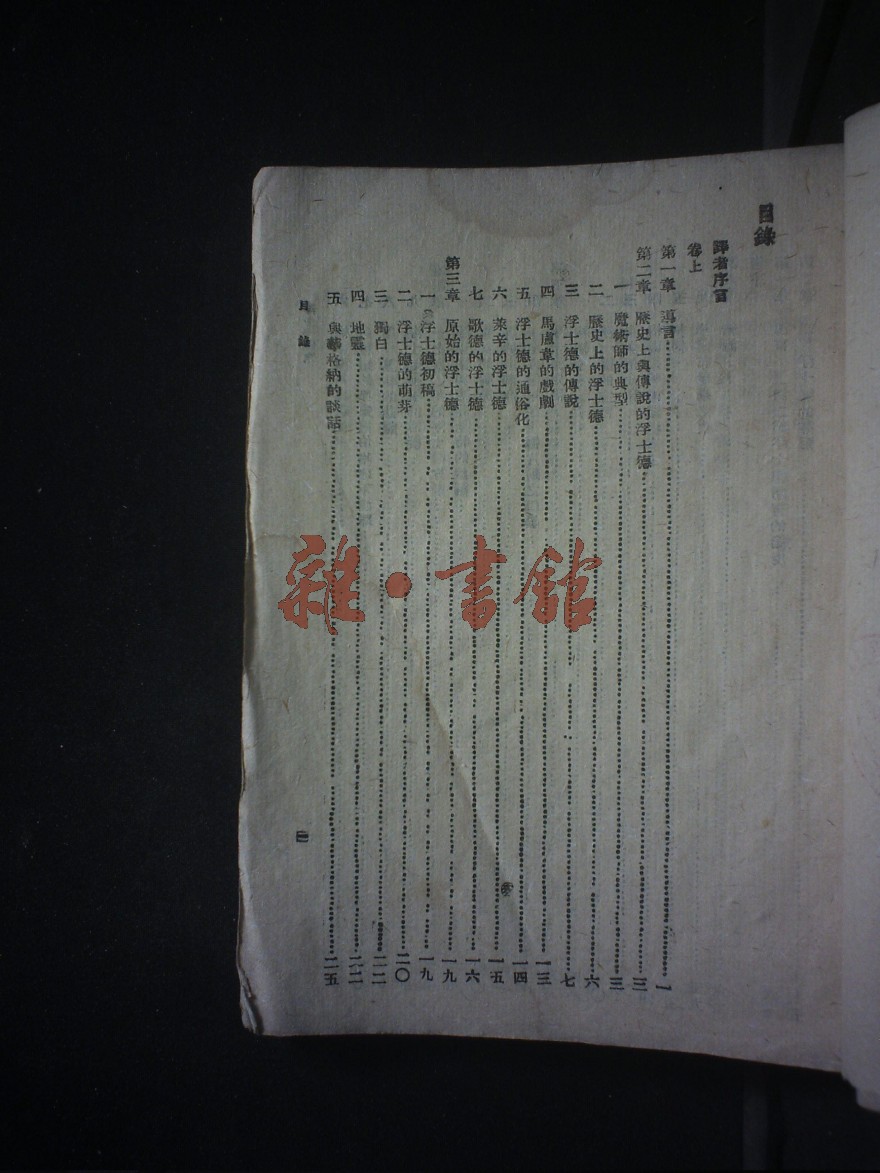 目錄
譯者序言
卷上
第一章 導言 一
第二章 歷史上與傳說的浮士德 三
一 魔術師的典型 三
二 歷史上的浮士德 六
三 浮士德的傳說 七
四 馬盧韋的戲劇 一三
五 浮士德的通俗化 一四
六 萊辛的浮士德 一五
七 歌德的浮士德 一六
第三章 原始的浮士德 一九
一 浮士德初稿 一九
二 浮士德的萌芽 二〇
三 獨白 二二
四 地靈 二二
五 與華格納的談話 二五
目錄
雜·書館